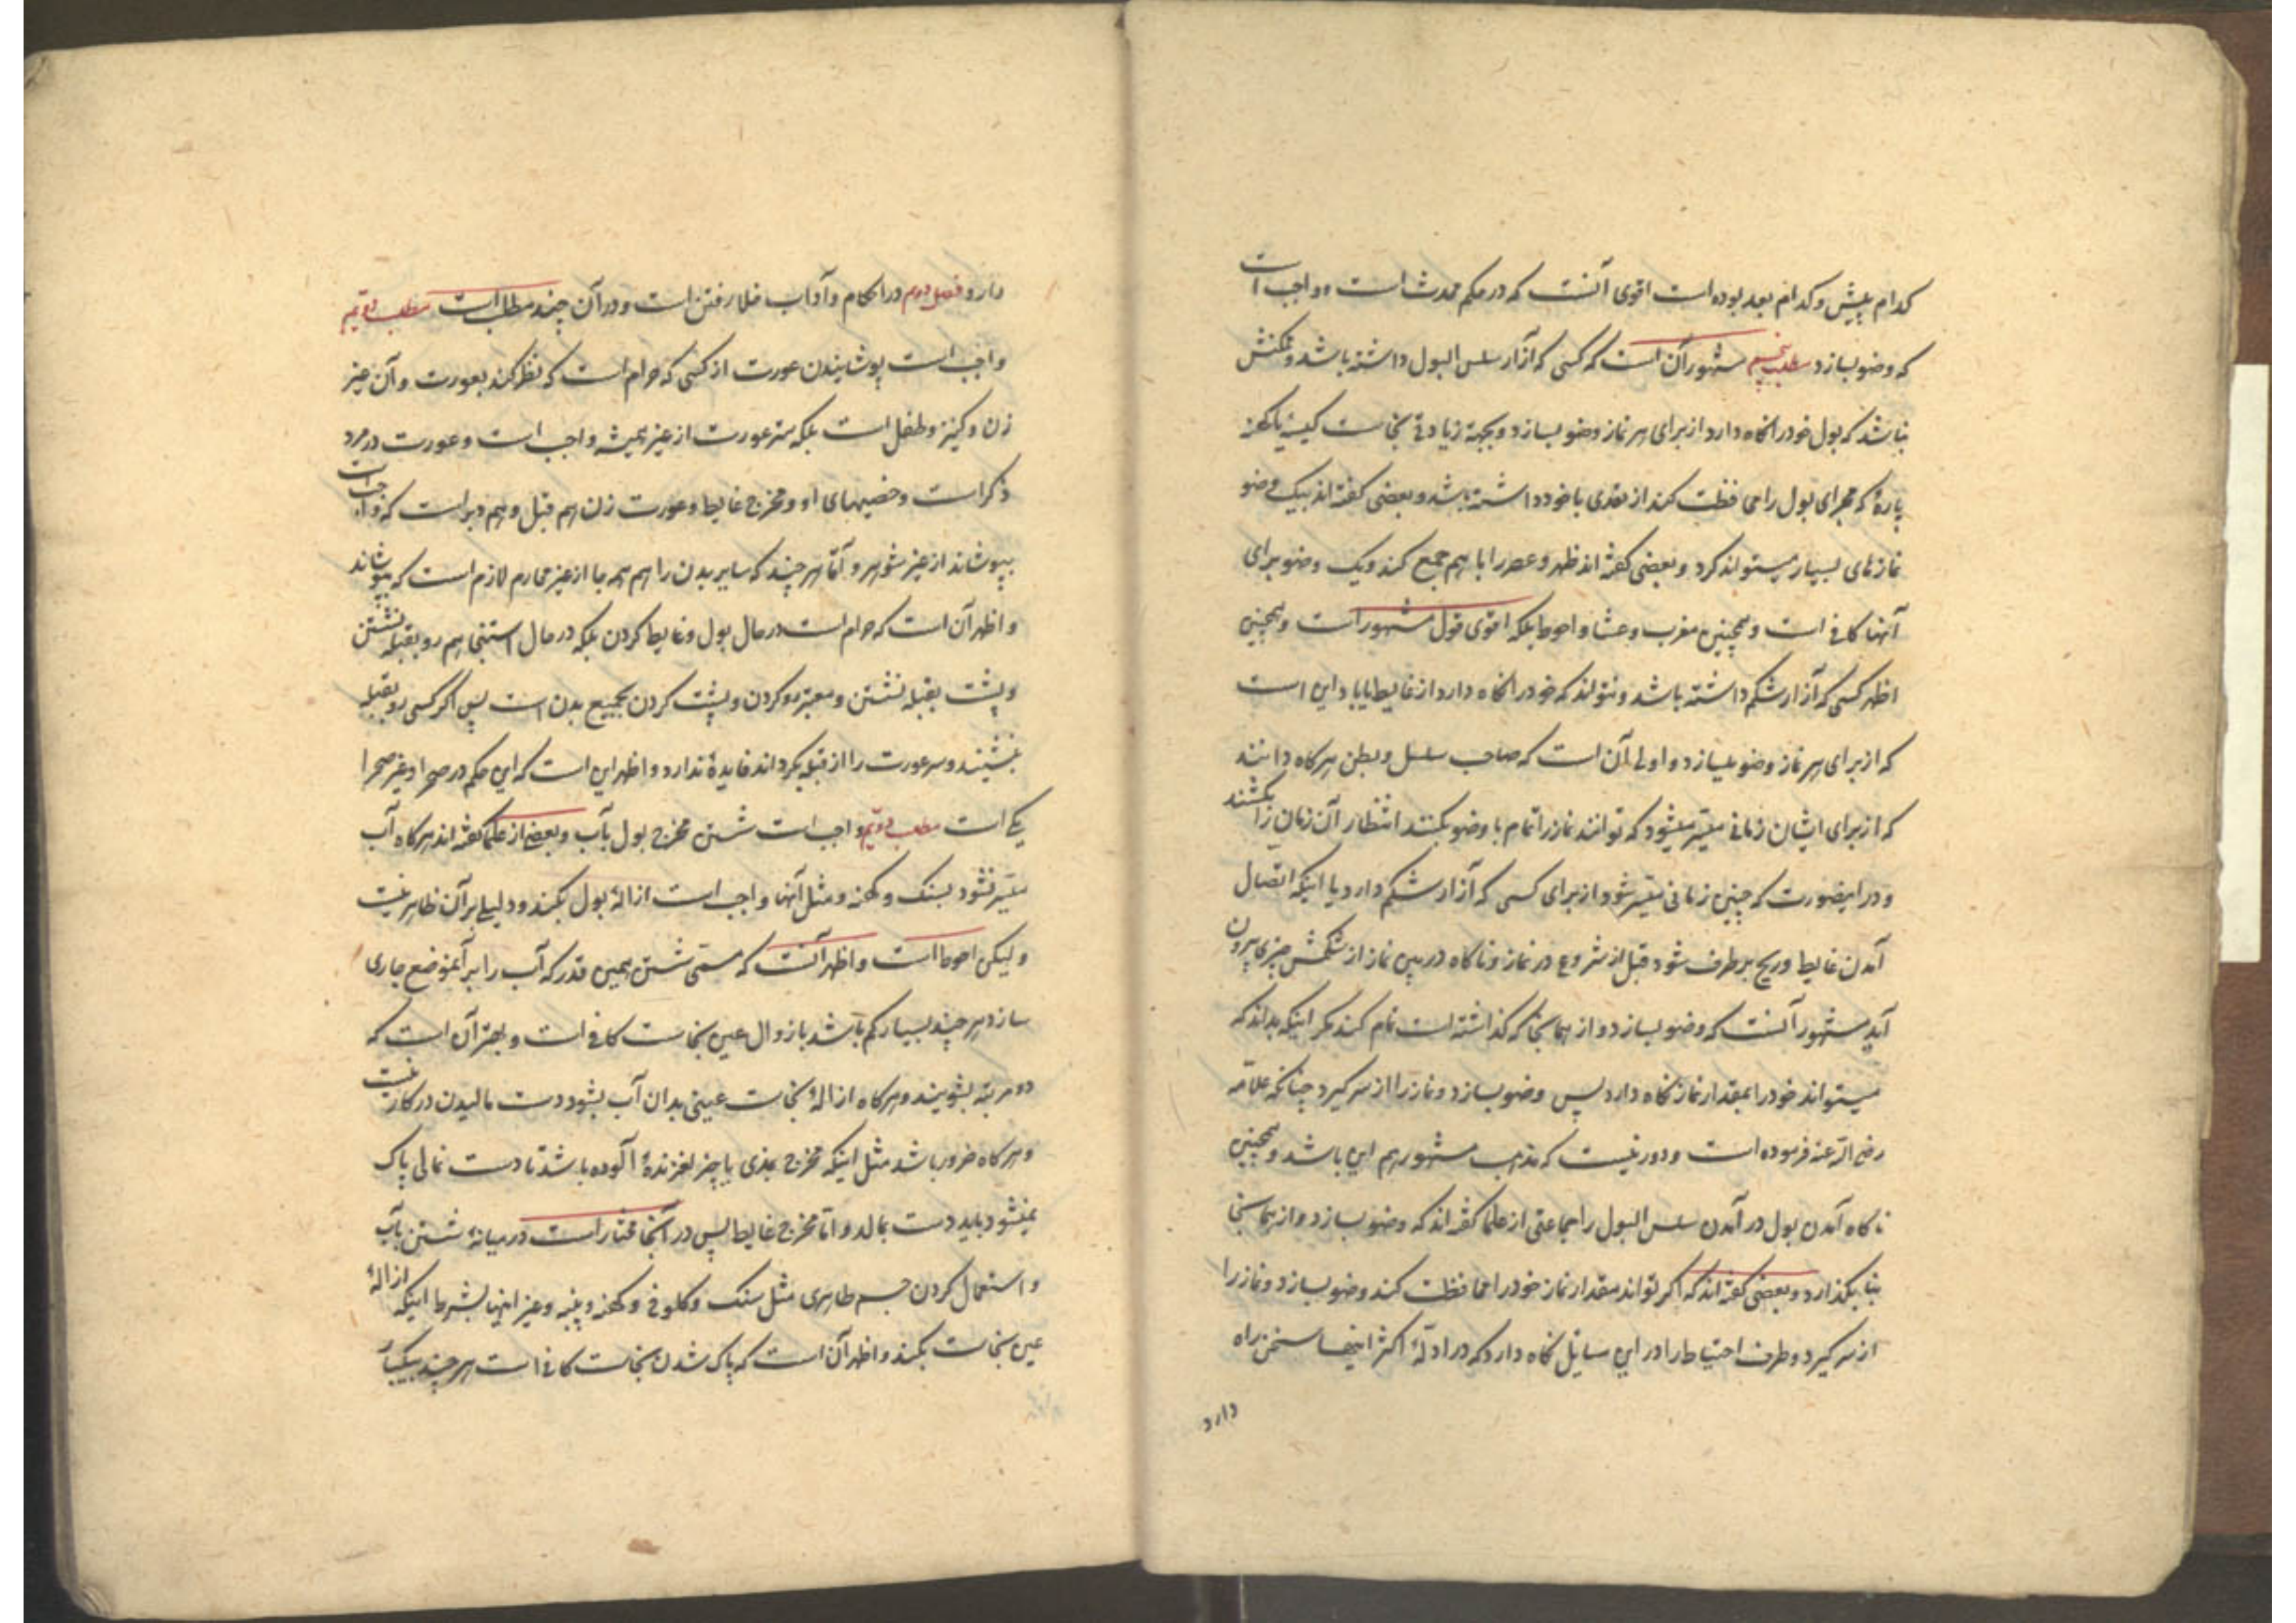 کدام پیش و کدام بعد بوده است اقوی آنست که در حکم محدث است و واجب است
که وضو بسازد مطلب پنجم مشهور آن است که کسی که آزار سلس البول داشته باشد و ممکنش
نباشد که بول خود را نگاه دارد از برای هر نماز وضو بسازد و بجهة زیادتی نجاست کیسهٔ یا کهنه
پارهٔ که مجرای بول را محافظت کند از تعدی با خود داشته باشد و بعضی گفته اند بیک وضو
نمازهای بسیار میتواند کرد و بعضی گفته اند ظهر و عصر را با هم جمع کند و یک وضو برای
آنها کافی است و همچنین مغرب و عشا و احوط بلکه اقوی قول مشهور است و همچنین
اظهر کسی که آزار شکم داشته باشد و نتواند که خود را نگاه دارد از غایط یا باد این است
که از برای هر نماز وضو بسازد و اولی آن است که صاحب سلس و بطن هرگاه دانند
که از برای ایشان زمانی میسّر میشود که توانند نماز را تمام با وضو بکنند انتظار آن زمان را بکشند
و در اینصورت که چنین زمانی میسّر شود از برای کسی که آزار شکم دارد یا اینکه اتصال
آمدن غایط و ریح برطرف شود قبل از شروع در نماز و ناگاه در بین نماز از شکمش چیزی بیرون
آید مشهور آنست که وضو بسازد و از همانجا که گذاشته است تمام کند مگر اینکه بداند که
میتواند خود را بمقدار نماز نگاه دارد پس وضو بسازد و نماز را از سر گیرد چنانکه علامّه
رضی الله عنه فرموده است و دور نیست که مذهب مشهور هم این باشد و همچنین
ناگاه آمدن بول در آمدن سلس البول را جماعتی از علما گفته اند که وضو بسازد و از همانجا
بنا بگذارد و بعضی گفته اند که اگر تواند مقدار نماز خود را محافظت کند وضو بسازد و نماز را
از سر گیرد و طرف احتیاط را در این مسایل نگاه دارد که در ادلّهٔ اکثر اینها سخن راه
دارد
دارد فصل دوم در احکام و آداب خلا رفتن است و در آن چند مطلب است مطلب
واجب است پوشانیدن عورت از کسی که حرام است که نظر کند بعورت و آن غیر
زن و کنیز و طفل است بلکه ستر عورت از غیر همیشه واجب است و عورت در مرد
ذکر است و خصیهای او و مخرج غایط و عورت زن هم قبل و هم دبر است که واجب است
بپوشاند از غیر شوهر و آقا هر چند که سایر بدن را هم همه جا از غیر محارم لازم است که بپوشاند
و اظهر آن است که حرام است در حال بول و غایط کردن بلکه در حال استنجا هم رو بقبله نشستن
و پشت بقبله نشستن و معتبر رو کردن و پشت کردن بجمیع بدن است پس اگر کسی رو بقبله
بنشیند و سر عورت را از قبله بگرداند فایدهٔ ندارد و اظهر این است که این حکم در صحرا و غیر صحرا
یکی است مطلب دویّم واجب است شستن مخرج بول بآب و بعضی از علما گفته اند هرگاه آب
میسّر نشود بسنک و کهنه و مثل آنها واجب است ازالهٔ بول بکند و دلیلی بر آن ظاهر نیست
و لیکن احوط است و اظهر آنست که مسمّی شستن همین قدر که آب را بر آنموضع جاری
سازد هر چند بسیار کم باشد با زوال عین نجاست کافی است و بهتر آن است که
دو مرتبه بشویند و هرگاه ازالهٔ نجاست عینی بدان آب بشود دست مالیدن در کار نیست
و هرگاه ضرور باشد مثل اینکه مخرج بمذی یا چیز لغزندهٔ آلوده باشد تا دست نمالی پاک
نمیشود باید دست بمالد و امّا مخرج غایط پس در آنجا مختار است در میانهٔ شستن بآب
و استعمال کردن جسم طاهری مثل سنک و کلوخ و کهنه و پنبه و غیر اینها بشرط اینکه ازالهٔ
عین نجاست بکند و اظهر آن است که پاک شدن نجاست کافی است هر چند بیک